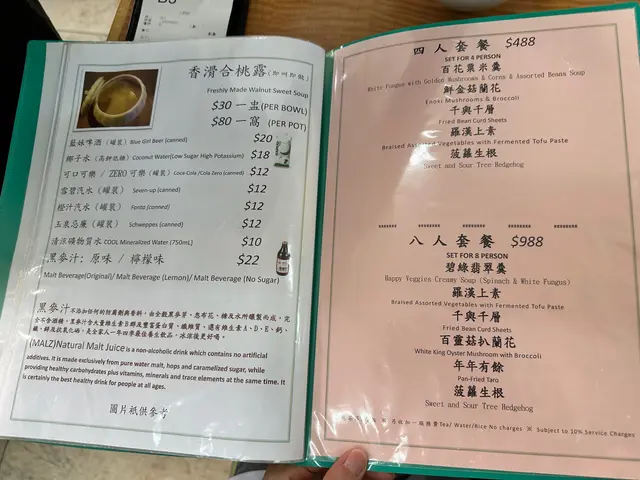 香滑合桃露（即叫即做）
Freshly Made Walnut Sweet Soup
$30 一盅(PER BOWL)
$80 一窩 (PER POT)
藍妹啤酒（罐裝）Blue Girl Beer (canned) $20
椰子水（高鉀低糖）Coconut Water(Low Sugar High Potassium) $18
可口可樂 / ZERO 可樂（罐裝）Coca-Cola /Cola Zero (canned) $12
雪碧汽水（罐裝）Seven-up (canned) $12
橙汁汽水（罐裝）Fanta (canned) $12
玉泉忌廉（罐裝）Schweppes (canned) $12
清涼礦物質水 COOL Mineralized Water (750mL) $10
黑麥汁: 原味 / 檸檬味 $22
Malt Beverage(Original)/ Malt Beverage (Lemon)/ Malt Beverage (No Sugar)
黑麥汁不添加任何的防腐劑與香料，由全穀黑麥芽、忽布花、糖及水所釀製而成，完
全不含酒精。黑麥汁含大量維生素B群及豐富蛋白質、纖維質，還有維生素A、D、E、鈣、
鐵、鋅及抗氧化硒，是全家人一年四季最佳養生飲品，冰涼後更好喝。
(MALZ)Natural Malt Juice is a non-alcoholic drink which contains no artificial
additives. It is made exclusively from pure water malt, hops and caramelized sugar, while
providing healthy carbohydrates plus vitamins, minerals and trace elements at the same time. It
is certainly the best healthy drink for people at all ages.
圖片祇供參考
四人套餐 $488
SET FOR 4 PERSON
百花粟米羹
White Fungus with Golden Mushrooms & Corns & Assorted Beans Soup
鮮金菇蘭花
Enoki Mushrooms & Broccoli
千與千層
Fried Bean Curd Sheets
羅漢上素
Braised Assorted Vegetables with Fermented Tofu Paste
菠蘿生根
Sweet and Sour Tree Hedgehog
八人套餐 $988
SET FOR 8 PERSON
碧綠翡翠羹
Happy Veggies Creamy Soup (Spinach & White Fungus)
羅漢上素
Braised Assorted Vegetables with Fermented Tofu Paste
千與千層
Fried Bean Curd Sheets
百靈菇扒蘭花
White King Oyster Mushroom with Broccoli
年年有餘
Pan-Fried Taro
菠蘿生根
Sweet and Sour Tree Hedgehog
※ 另收加一服務費 Tea/ Water/Rice No charges ※ Subject to 10% Service Charges